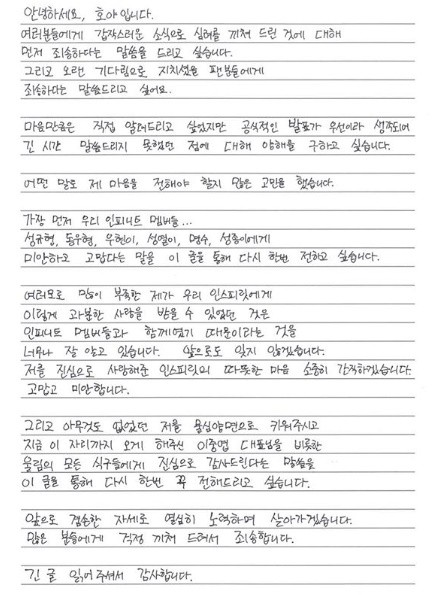 안녕하세요, 호야입니다.
여러분들에게 갑작스러운 소식으로 심려를 끼쳐 드린 것에 대해
먼저 죄송하다는 말씀을 드리고 싶습니다.
그리고 오랜 기다림으로 지치셨을 팬분들에게
죄송하다는 말씀드리고 싶어요.
마음만큼은 직접 알려드리고 싶었지만 공식적인 발표가 우선이라 생각되어
긴 시간 말씀드리지 못했던 점에 대해 양해를 구하고 싶습니다.
어떤 말로 제 마음을 전해야 할지 많은 고민을 했습니다.
가장 먼저 우리 인피니트 멤버들...
성규형, 동우형, 우현이, 성열이, 명수, 성종이에게
미안하고 고맙다는 말을 이 글을 통해 다시 한번 전하고 싶습니다.
여러모로 많이 부족한 제가 우리 인스피릿에게
이렇게 과분한 사랑을 받을 수 있었던 것은
인피니트 멤버들과 함께였기 때문이라는 것을
너무나 잘 알고 있습니다. 앞으로도 잊지 않겠습니다.
저를 진심으로 사랑해준 인스피릿의 따뜻한 마음 소중히 간직하겠습니다
고맙고 미안합니다.
그리고 아무것도 없었던 저를 물심양면으로 키워주시고
지금 이 자리까지 오게 해주신 이중엽 대표님을 비롯한
울림의 모든 식구들에게 진심으로 감사드린다는 말씀을
이 글을 통해 다시 한번 꼭 전해드리고 싶습니다.
앞으로 겸손한 자세로 열심히 노력하며 살아가겠습니다.
많은 분들에게 걱정 끼쳐 드려서 죄송합니다.
긴 글 읽어주셔서 감사합니다.